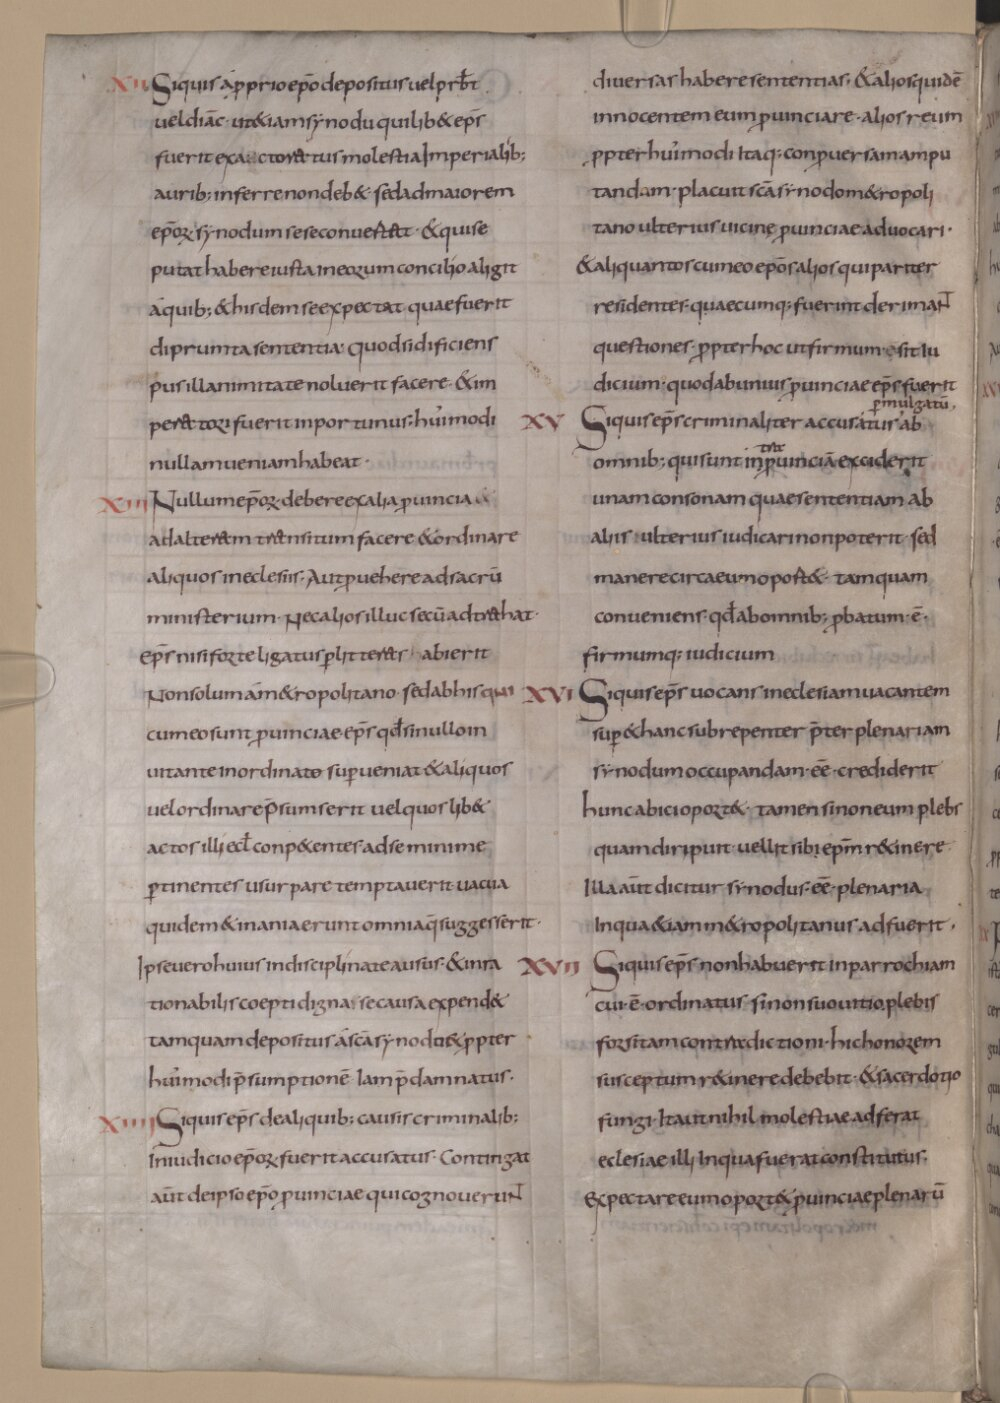 XII Siquis a proprio epō depositus uel prbt
uel diāc· ut & iam synodu quilib& epś
fuerit exauctoratus molestia Imperialib;
aurib; inferre non deb& sed ad maiorem
epōꝝ· synodum sese conuertat· & quise
putat habere iusta ineorum concilio aligit
á quib; & hisdem se expectat quae fuerit
diprumta sententia· quod si dificiens
pusillanimitate noluerit facere· & im
peratori fuerit inportunus· hui̅modi
nullam ueniam habeat·
XIII Nullum epōꝝ· debere ex alia ꝓuincia
ad alteram transitum facere & ordinare
aliquos ineclesiis· Aut ꝓuehere ad sacrū
ministerium· Nec alios illuc secū adtrahat·
epś nisi forte ligatus ꝑ litteras abierit
Non solum a m&ropolitano· sed ab his qui
cum eo sunt ꝓuinciae epś qđ si nullo in
uitante inordinato suꝑueniat & aliquos
uel ordinare p̄sumserit uel quos lib&
actos illi eccl conp&entes ad se minime
ꝑtinentes usurpare temptauerit uacua
quidem & inania erunt omnia q̄ suggesserit·
Ipse uero huius indisciplinate ausus· & inra
tionabilis coepti dignas se causa expend&
tamquam depositus a scā synodu & ꝓpter
hui̅modi p̄sumptionē Iam p̄damnatus·
XIIII Siquis epś de aliquib; causis criminalib;
In iudicio epōꝝ fuerit accusatus· Contingat
aūt de ipso epō ꝓuinciae qui cognouerunt
diuersas habere sententias· & alios quidē
innocentem eum ꝓuinciare· alios reum
ꝓpter hui̅modi Itaq; conꝓuersam ampu
tandam· placuit scā synodo m&ropoli
tano ulterius uicine ꝓuinciae aduocari·
& aliquantos cum eo epōs alios qui pariter
residentes· quaecumq; fuerint derimant
questiones ꝓpter hoc ut firmum sit Iu
dicium· quod ab unius ꝓuinciae epś fuerit
ꝓmulgatū,
XV Siquis epś criminaliter accusatus ab
omnib; qui sunt in ꝓuinciā exciderit
unam consonam quae sententiam ab
aliis ulterius iudicari non poterit· sed
manere circa eum oport&· tamquam
conueniens· qđ ab oinnib; ꝓbatum· ē·
firmumq; iudicium
XVI Siquis epś uocans ineclesiam uacantem
suꝑ & hanc subrepenter p̄ter plenariam
synodum occupandam· eē· crediderit
hunc abici oport&· tamen si non eum plebs
quam diripuit uellit sibi epm̄ r&inere
Illa aūt dicitur synodus· eē· plenaria
In qua & iam m&ropolitanus adfuerit·
XVII Siquis epś non habuerit in parrochiam
cui· ē· ordinatus· si non suo uitio plebis
forsitam contradictioni· hic honorem
susceptum r&inere debebit· & sacerdotio
fungi· Ita ut nihil molestiae adferat
eclesiae illi In qua fuerat constitutus·
Expectare eum oport& ꝓuinciae plenarū